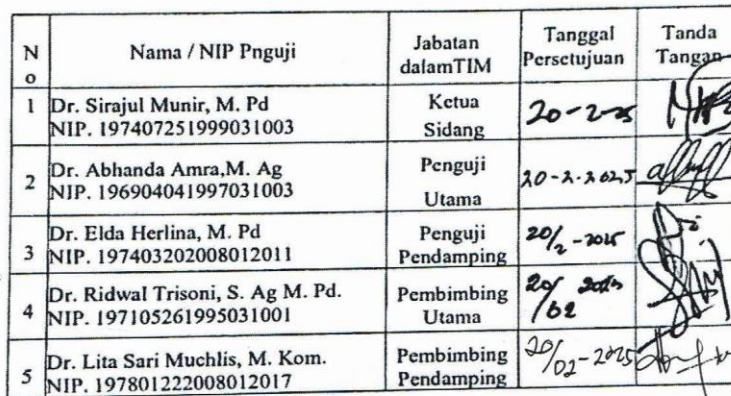 N
o
Nama / NIP Pnguji
Jabatan
dalamTIM
Tanggal
Persetujuan
Tanda
Tangan
1
Dr. Sirajul Munir, M. Pd
NIP. 197407251999031003
Ketua
Sidang
20-2-25
2
Dr. Abhanda Amra,M. Ag
NIP. 196904041997031003
Penguji
Utama
20-2-2025
3
Dr. Elda Herlina, M. Pd
NIP. 197403202008012011
Penguji
Pendamping
20/2-2025
4
Dr. Ridwal Trisoni, S. Ag M. Pd.
NIP. 197105261995031001
Pembimbing
Utama
20/02 2025
5
Dr. Lita Sari Muchlis, M. Kom.
NIP. 197801222008012017
Pembimbing
Pendamping
20/02-2025